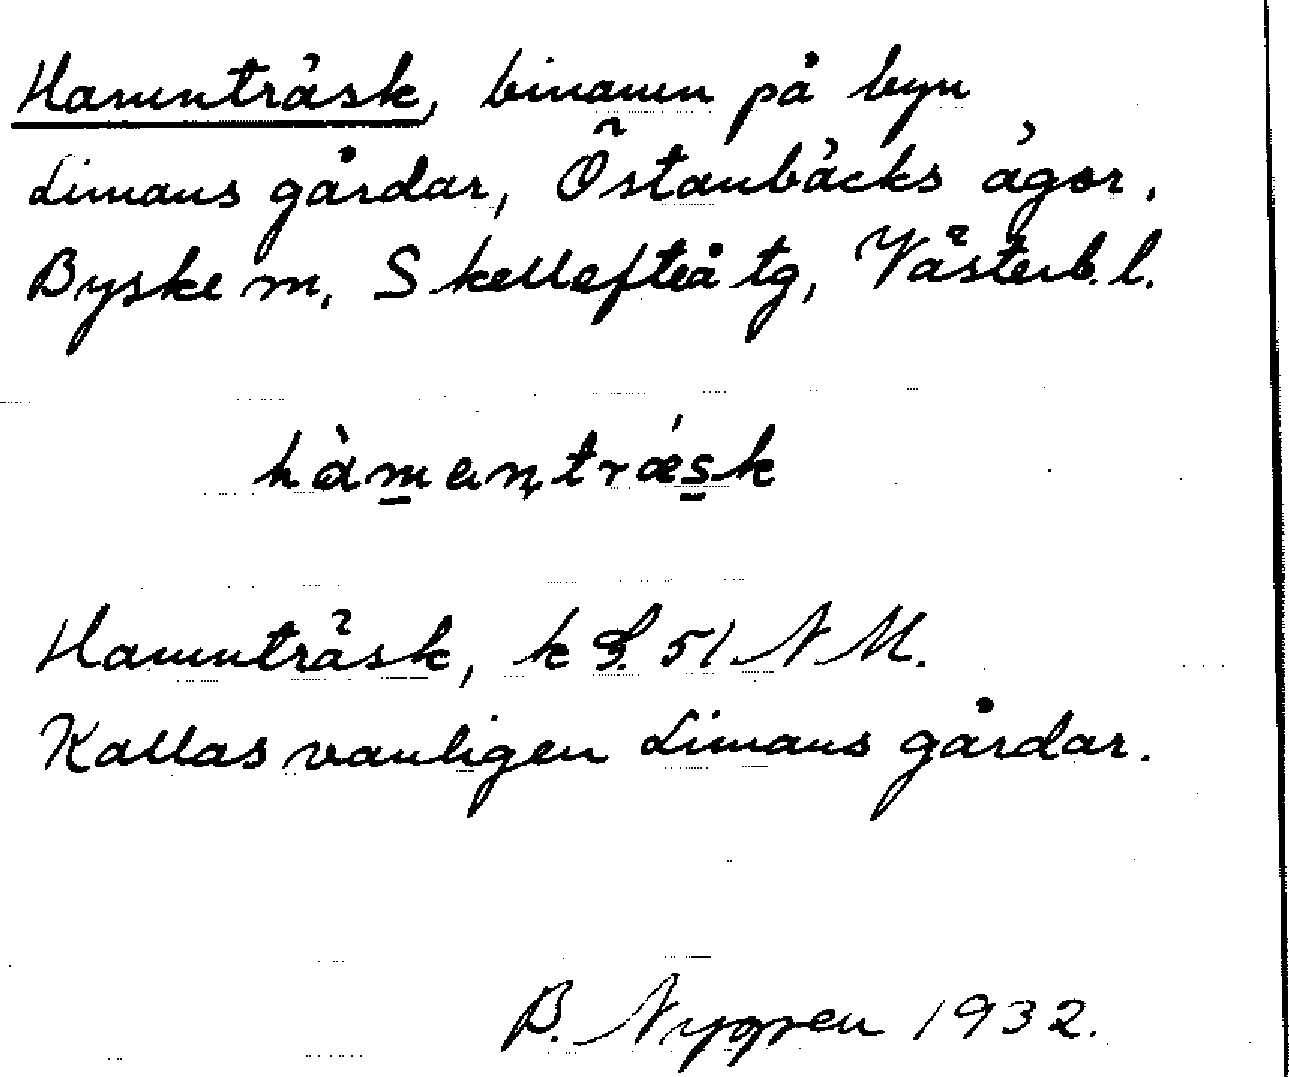 Hamnträsk, binamn på byn
Limans gårdar, Östanbäcks ägor,
Byske sn, Skellefteå tg, Västerb. l.
hàmanträ́sk
Hamnträsk, k 51 NM.
Kallas vanligen Limans gårdar.
B. Nygren 1932.